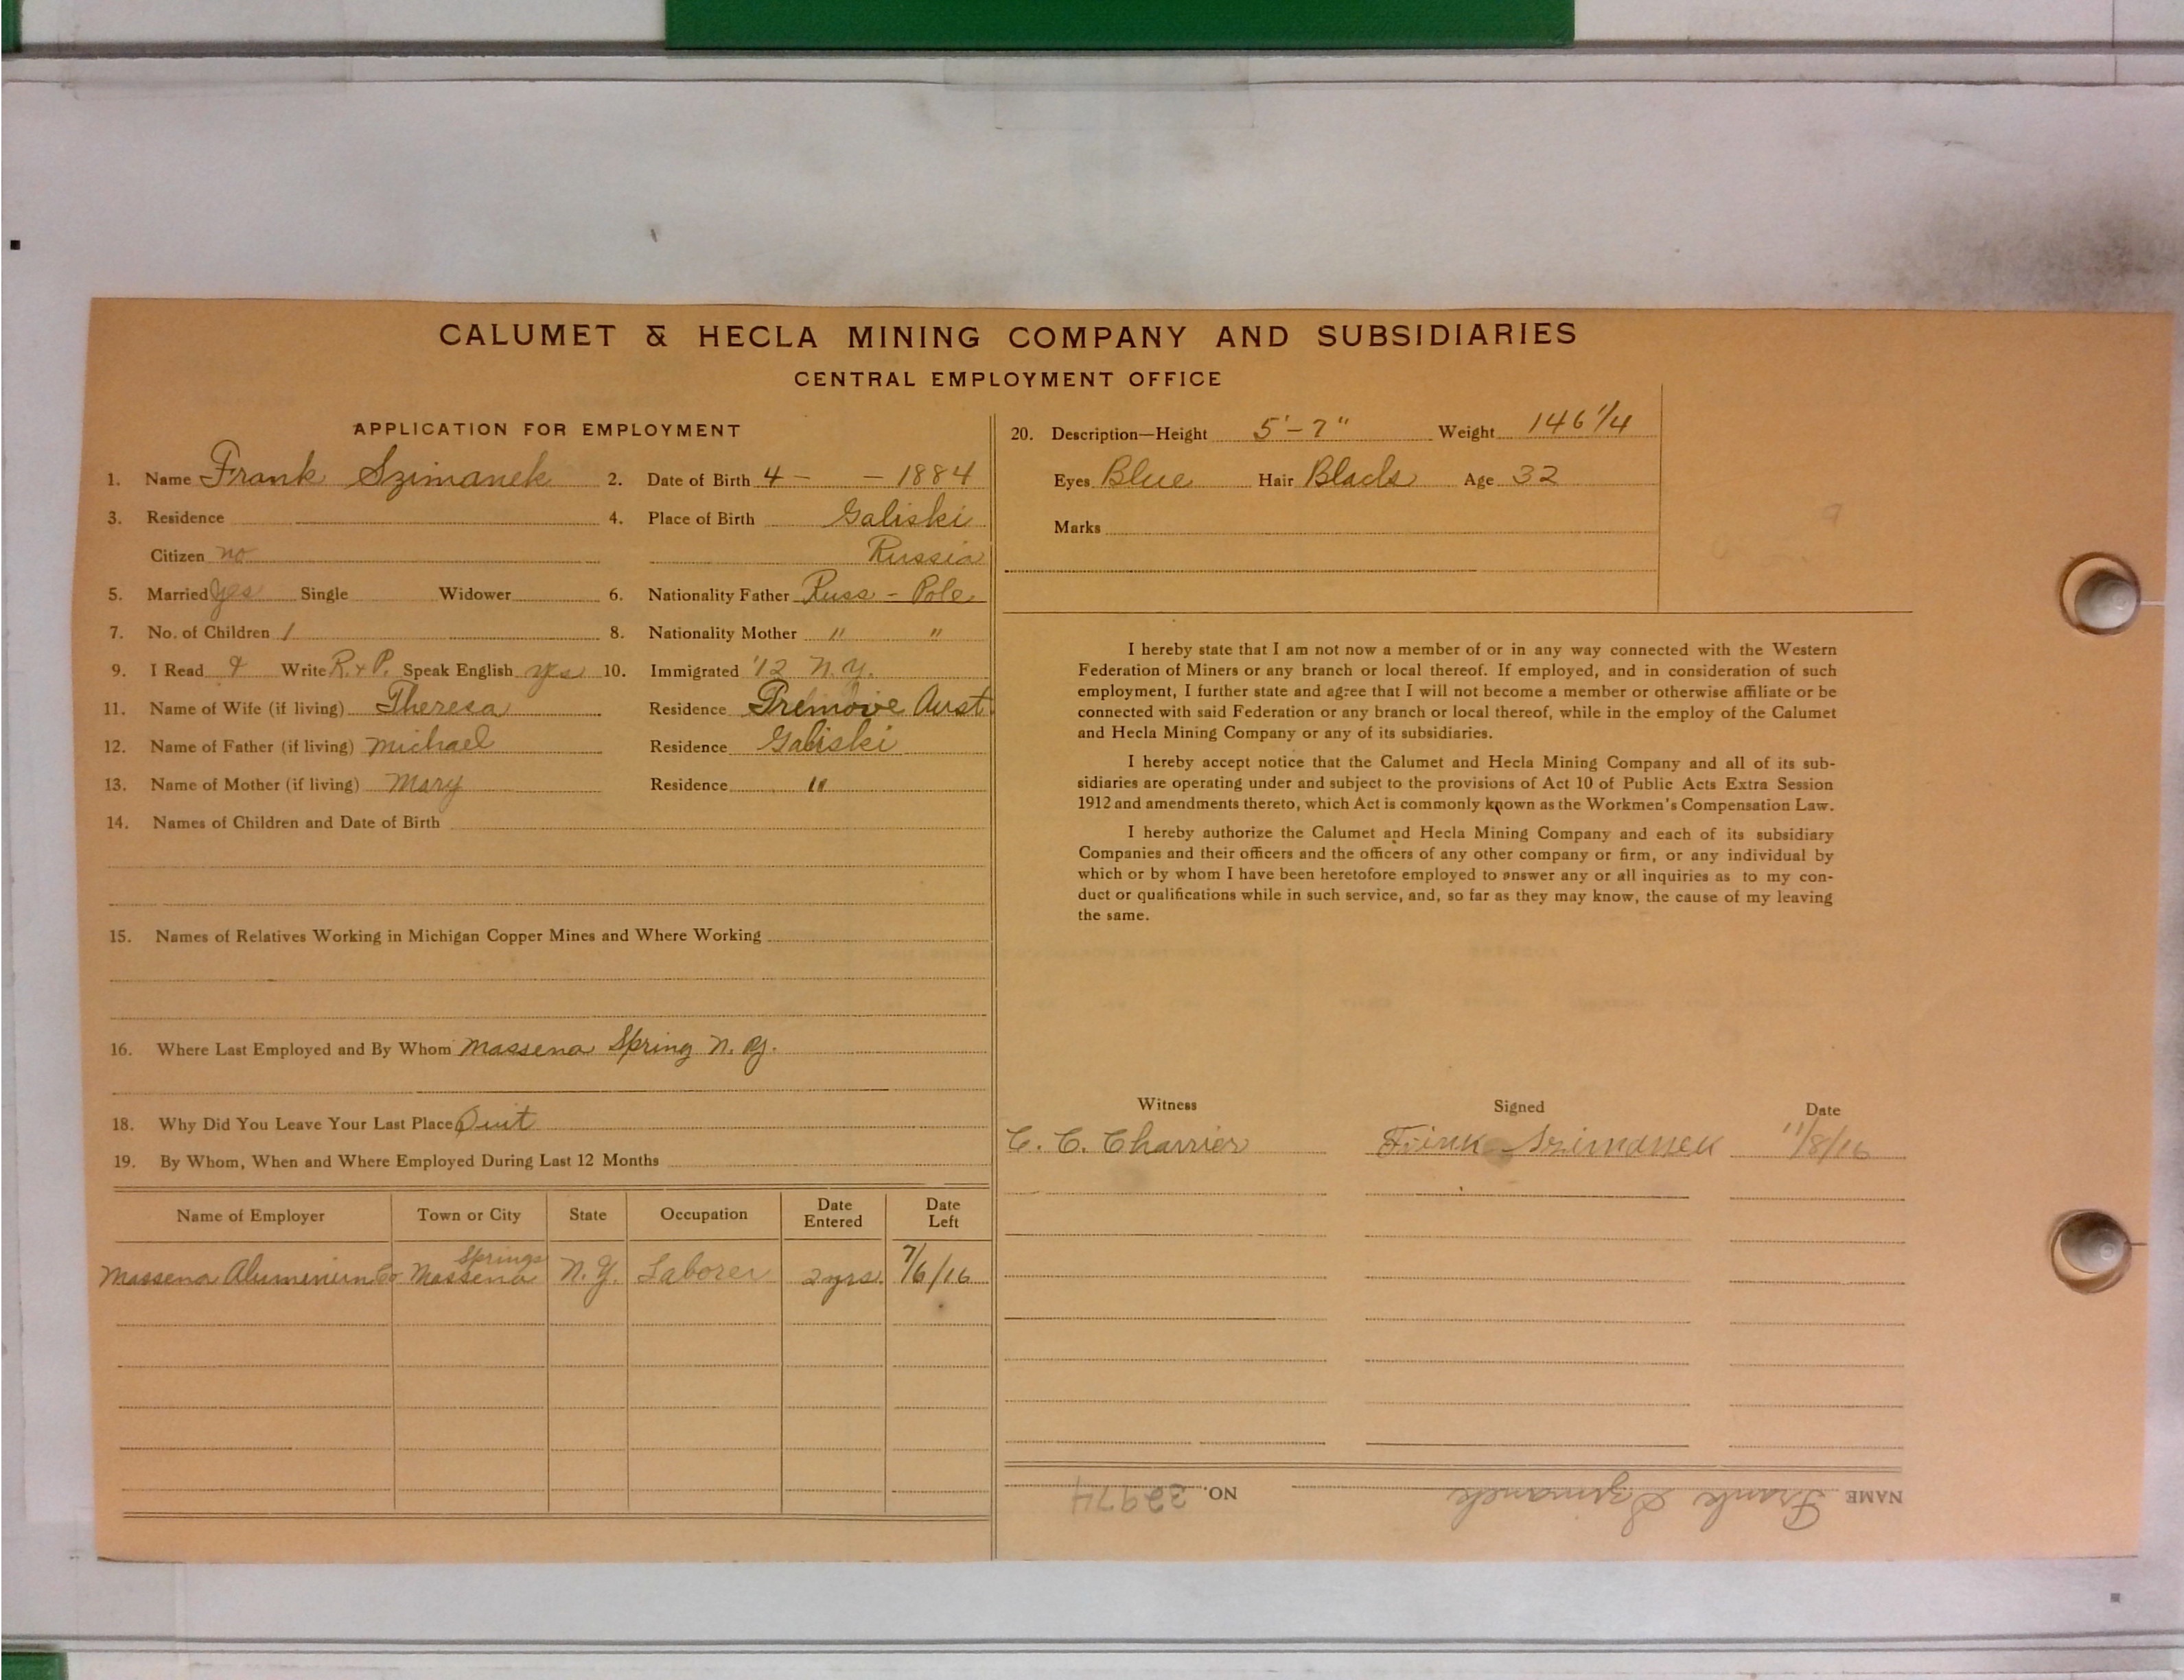 CALUMET & HECLA MINING COMPANY AND SUBSIDIARIES
CENTRAL EMPLOYMENT OFFICE
APPLICATION FOR EMPLOYMENT
1. Name Frank Szimanek 2. Date of Birth 4 - - 1884
3. Residence 4. Place of Birth Galiski
Citizen no Russia
5. Married yes Single Widower 6. Nationality Father Russ - Pole
7. No. of Children 1 8. Nationality Mother " "
9. I Read & Write R. & P. Speak English yes 10. Immigrated '12 N.Y.
11. Name of Wife (if living) Theresa Residence Aust.
12. Name of Father (if living) Michael Residence Galiski
13. Name of Mother (if living) Mary Residence "
14. Names of Children and Date of Birth
15. Names of Relatives Working in Michigan Copper Mines and Where Working
16. Where Last Employed and By Whom Massena Spring N. Y.
18. Why Did You Leave Your Last Place Quit
19. By Whom, When and Where Employed During Last 12 Months
Name of Employer Town or City State Occupation Date Entered Date Left
Massena Aluminium Co Massena Springs N.Y. Laborer 2 yrs. 7/6/16
20. Description—Height 5'-7" Weight 146 1/4
Eyes Blue Hair Black Age 32
Marks
I hereby state that I am not now a member of or in any way connected with the Western
Federation of Miners or any branch or local thereof. If employed, and in consideration of such
employment, I further state and agree that I will not become a member or otherwise affiliate or be
connected with said Federation or any branch or local thereof, while in the employ of the Calumet
and Hecla Mining Company or any of its subsidiaries.
I hereby accept notice that the Calumet and Hecla Mining Company and all of its sub-
sidiaries are operating under and subject to the provisions of Act 10 of Public Acts Extra Session
1912 and amendments thereto, which Act is commonly known as the Workmen's Compensation Law.
I hereby authorize the Calumet and Hecla Mining Company and each of its subsidiary
Companies and their officers and the officers of any other company or firm, or any individual by
which or by whom I have been heretofore employed to answer any or all inquiries as to my con-
duct or qualifications while in such service, and, so far as they may know, the cause of my leaving
the same.
Witness Signed Date
C. C. Charrier Frank Szimanek 11/8/16
NAME Frank Szimanek NO. 32974